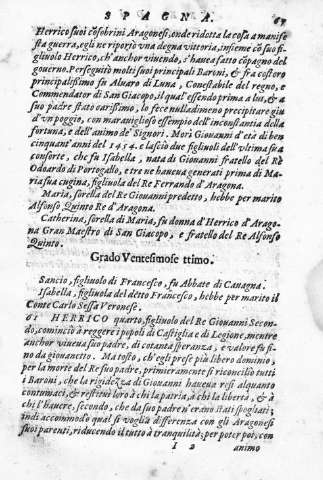 SPAGNA. 67
Herrico suoi cōsobrini Aragonesi, onde ridotta la cosa a manife
sta guerra, egli ne riportò vna degna vittoria, insieme cō suo fi-
gliuolo Herrico, ch'anchor viuendo, s'hauea fatto cōpagno del
gouerno. Perseguitò molti suoi principali Baroni, & fra costoro
principalissimo fu Aluaro di Luna, Conestabile del regno, e
Commendator di San Giacopo, il qual essendo prima a lui, & a
suo padre stato carissimo, lo fece nudadimeno precipitare giu
d'vn poggio, con marauiglioso essempio dell'inconstantia della
fortuna, e dell'animo de' Signori. Morì Giouanni d'età di ben
cinquant'anni del 1454. e lasciò due figliuoli dell'vltima sua
consorte, che fu Isabella, nata di Giouanni fratello del Rè
Odoardo di Portogallo, e tre ne haueua generati prima di Ma-
ria sua cugina, figliuola del Re Ferrando d'Aragona.
Maria, sorella del Re Giouanni predetto, hebbe per marito
Alfonso Quinto Re d'Aragona.
Catherina, sorella di Maria, fu donna d'Herrico d'Arago-
na Gran Maestro di San Giacopo, e fratello del Re Alfonso
Quinto.
Grado Ventesimose ttimo.
Sancio, figliuolo di Francesco, fu Abbate di Canagna.
Isabella, figliuola del detto Francesco, hebbe per marito il
Conte Carlo Sessa Veronese.
61 HERRICO quarto, figliuolo del Re Giouanni Secon-
do, cominciò a reggere i popoli di Castiglia e di Legione, mentre
anchor viueua suo padre, di cotanta speranza, e valore fu fi-
no da giouanetto. Ma tosto, ch'egli prese più libero dominio,
per la morte del Re suo padre, primieramente si riconciliò tutti
i Baroni, che la rigidezza di Giouanni haueua resi alquanto
contumaci, & restituì loro à chi la patria, à chi la libertà, & à
chi l'hauere, secondo, che da suo padre n'erano stati spogliati;
indi accommodò qual si voglia differenza con gli Aragonesi
suoi parenti, riducendo il tutto à tranquilità; per poter poi, con
I 2 animo